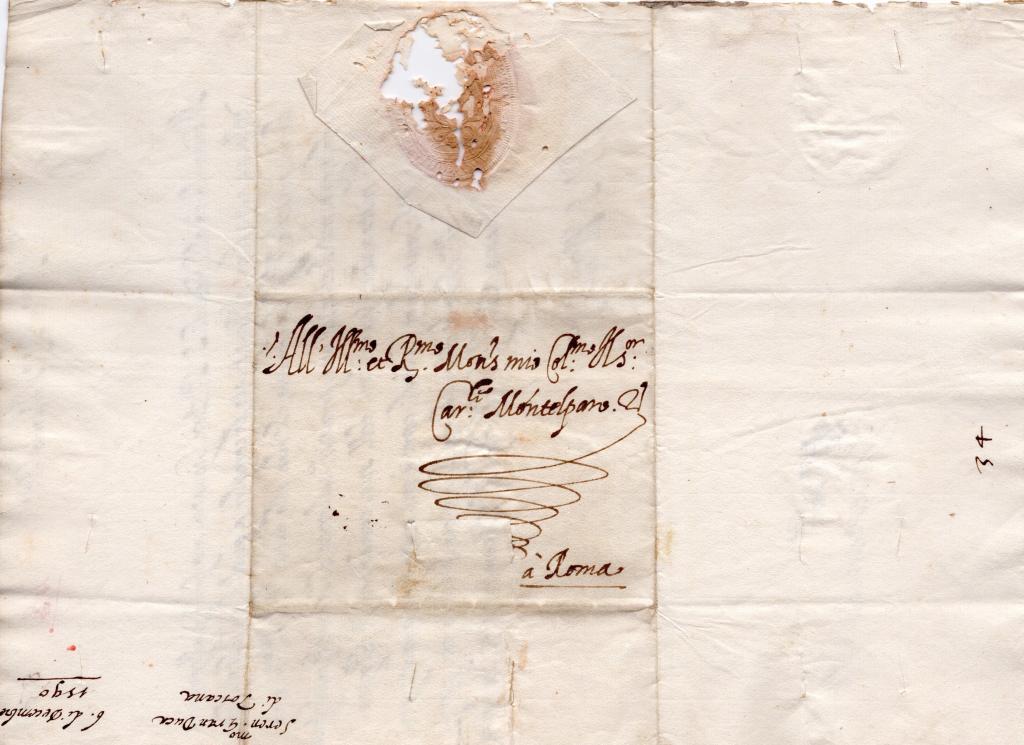 All' Ill.mo et R.mo Mons.r mio Col.mo Il S.or
Car.le Montelparo.
à Roma
34
Seren.mo Gran Duca
di Toscana
6. di Decembre
1590